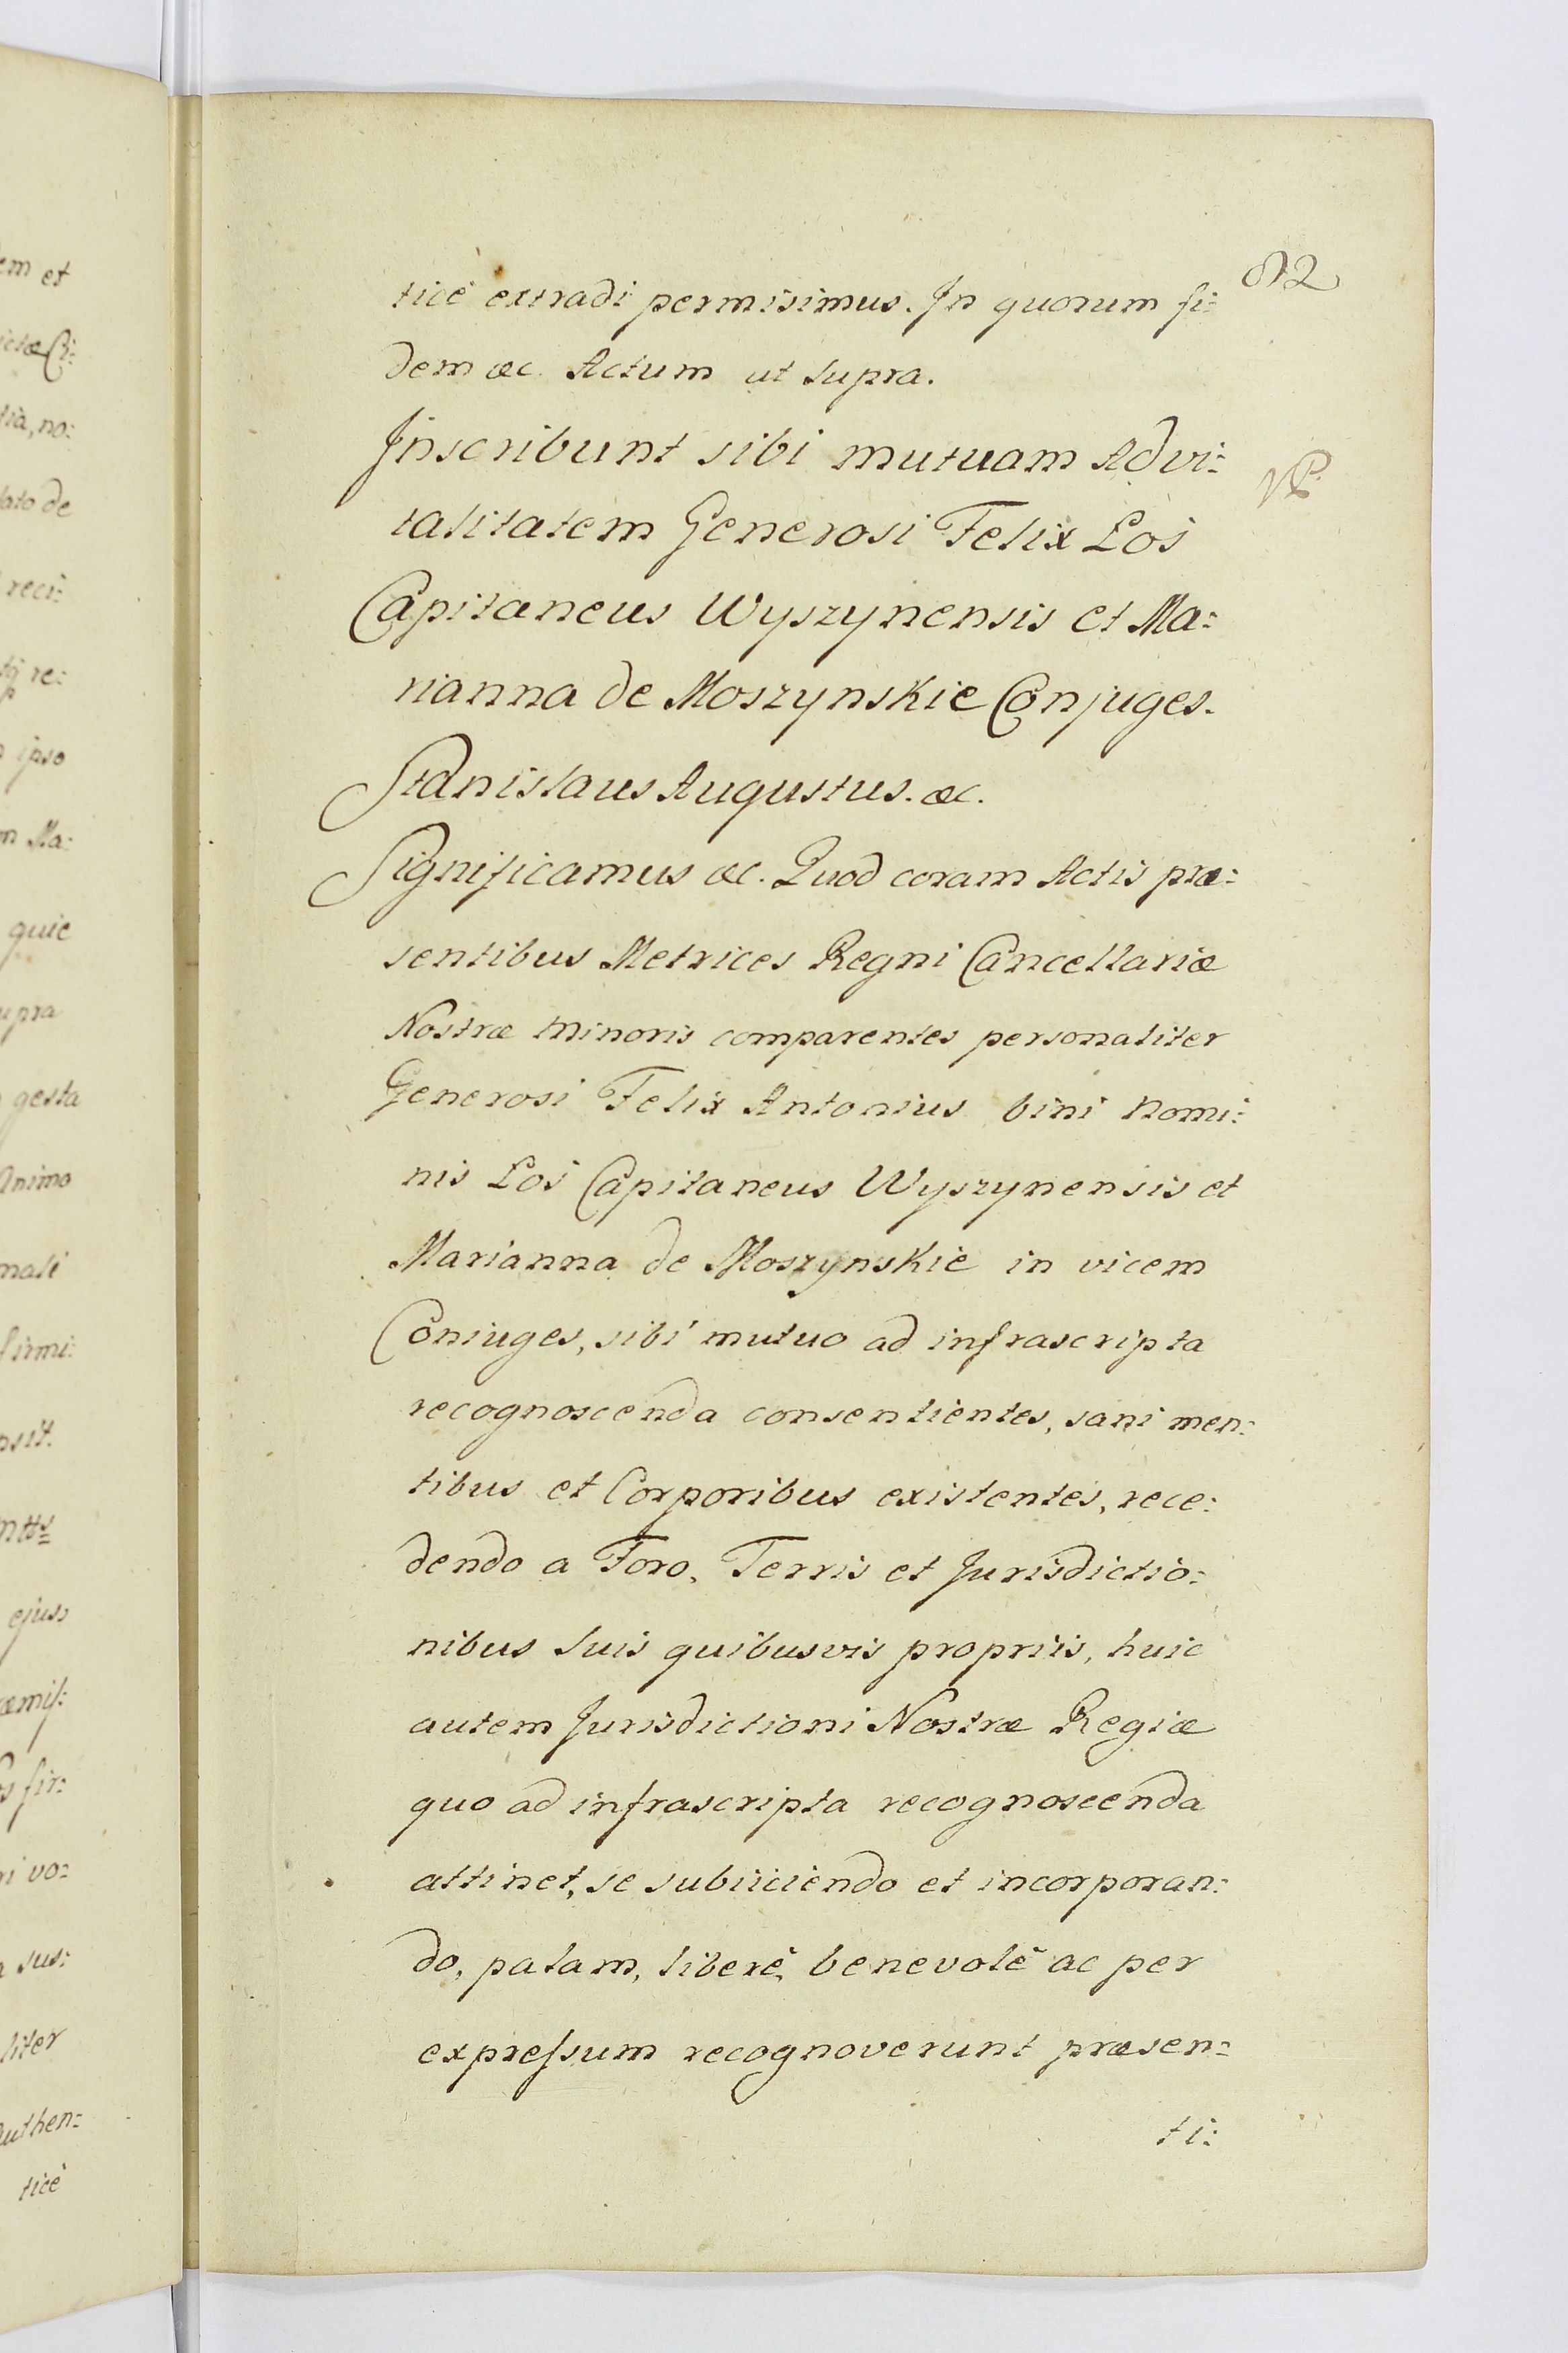 82
ticè extradi permisimus. In quorum fi:
dem &c. Actum ut supra.
Inscribunt sibi mutuam Advi:
talitatem Generosi Felix Łoś
Capitaneus Wyszynensis et Ma:
rianna de Moszynskie Conjuges.
Stanislaus Augustus. &c.
Significamus &c. Quod coram Actis præ:
sentibus Metrices Regni Cancellariæ
Nostræ minoris comparentes personaliter
Generosi Felix Antonius bini nomi:
nis Łoś Capitaneus Wyszynensis et
Marianna de Moszynskie in vicem
Coniuges, sibi mutuo ad infrascripta
recognoscenda consentientes, sani men:
tibus et Corporibus existentes, rece:
dendo a Foro, Terris et Jurisdictio:
nibus suis quibusvis propriis, huic
autem Jurisdictioni Nostræ Regiæ
quo ad infrascripta recognoscenda
attinet, se subiiciendo et incorporan:
do, palam, liberè, benevolè ac per
expressum recognoverunt præsen:
ti:
em et
tia, no:
lato de
reci:
re:
ipso
m Ma:
quie
upra
gesta
Animo
mali
firmi:
nsit.
ejus
fir:
ri vo:
sus:
liter
Authen:
ticè